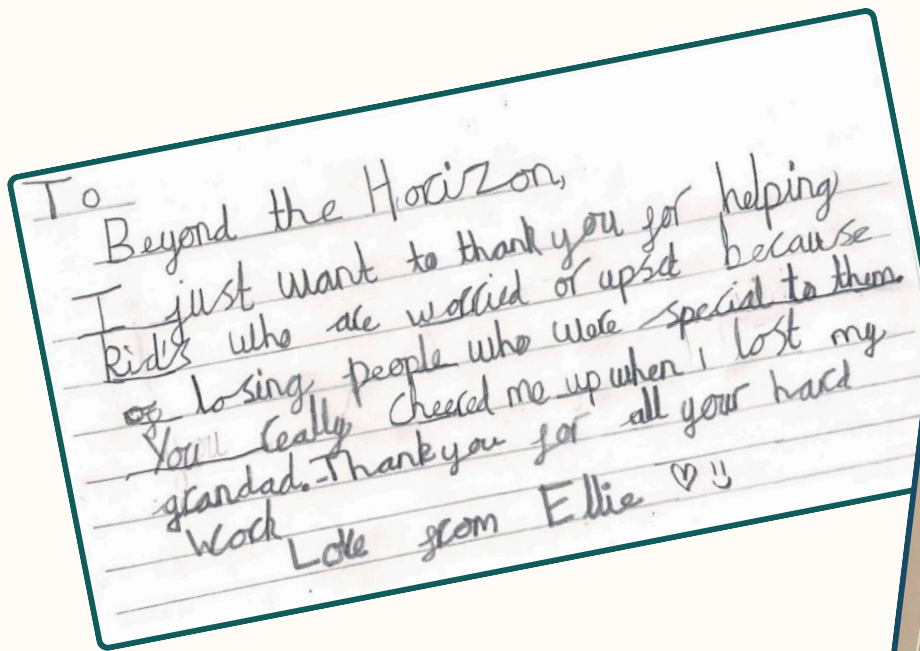 To
Beyond the Horizon,
I just want to thank you for helping
kid's who are worried or upset because
of losing people who were special to them
You really cheered me up when i lost my
grandad. Thankyou for all your hard
work
Love from Ellie ♡ :)